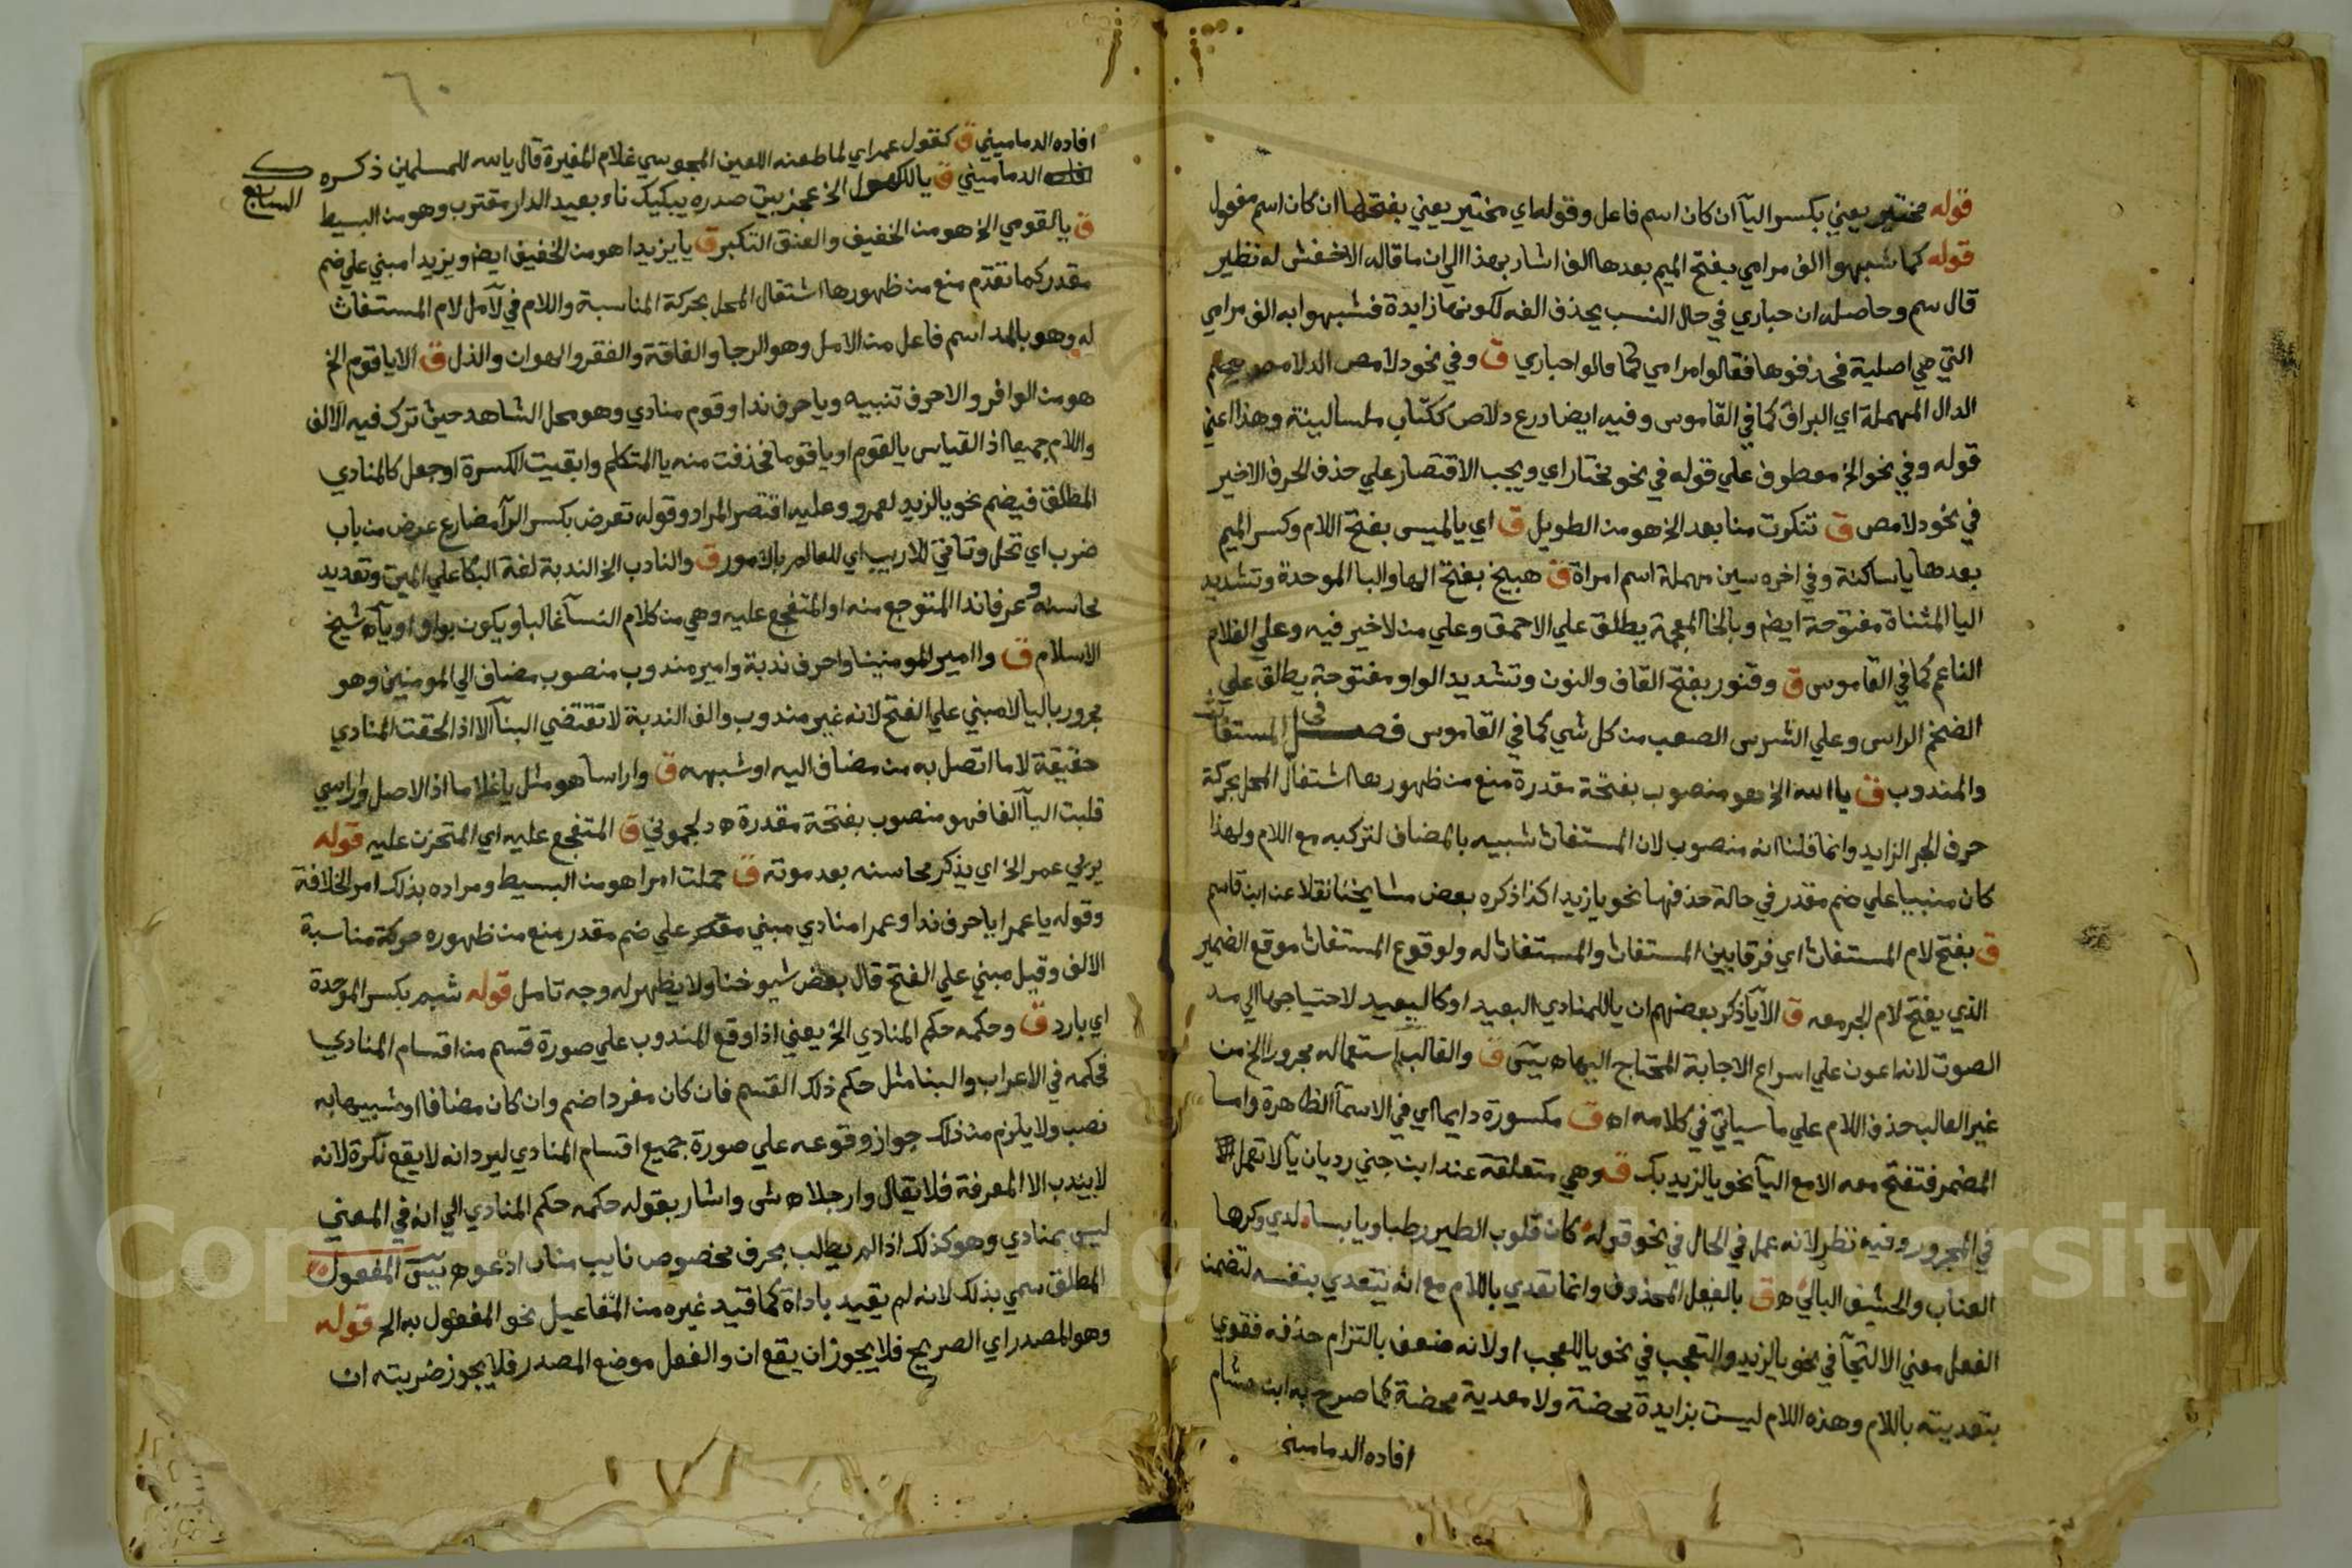 قوله مختير يعني بكسر اليآ ان كان اسم فاعل وقوله اي مختير يعني بفتحها ان كان اسم مفعول
قوله كما شبهوا الف مرامي بفتح الميم بعدها الف اشار بهذا الي ان ما قاله الاخفش له نظير
قال سم وحاصله ان حباري في حال النسب يحذف الفه لكونها زايدة فشبهوا به الف مرامي
التي هي اصلية فحذفوها فقالوا مرامي كما قالوا حباري ق وفي نحو دلامص الدلامص
الدال المهملة اي البراق كما في القاموس وفيه ايضا درع دلاص ككتاب ملسا لينة وهذا اعني
قوله وفي نحو الخ معطوف علي قوله في نحو مختار اي ويجب الاقتصار علي حذف الحرف الاخير
في نحو دلامص ق تنكرت منا بعد الخ هو من الطويل ق اي يالميس بفتح اللام وكسر الميم
بعدها يا ساكنة وفي اخره سين مهملة اسم امراة ق هبيخ بفتح الها والبا الموحدة وتشديد
اليا المثناة مفتوحة ايضا وبالخا المعجمة يطلق علي الاحمق وعلي من لا خير فيه وعلي الغلام
الناعم كما في القاموس ق وقنور بفتح القاف والنون وتشديد الواو مفتوحة يطلق علي
الضخم الراس وعلي الشرس الصعب من كل شي كما في القاموس فصل في المستغاث
والمندوب ق يا الله الخ هو منصوب بفتحة مقدرة منع من ظهورها اشتغال المحل بحركة
حرف الجر الزايد وانما قلنا انه منصوب لان المستغاث شبيه بالمضاف لتركبه مع اللام ولهذا
كان مبنيا علي ضم مقدر في حالة حذفها نحو يا زيدا كذا ذكره بعض مشايخنا نقلا عن ابن قاسم
ق بفتح لام المستغاث اي فرقا بين المستغاث والمستغاث له ولوقوع المستغاث موقع الضمير
الذي يفتح لام الجر معه ق الا يآ ذكر بعضهم ان يا للمنادي البعيد او كالبعيد لاحتياجها الي مد
الصوت لانه اعون علي اسراع الاجابة المحتاج اليها ه يس ق والغالب استعماله مجرورا الخ من
غير الغالب حذف اللام علي ما سياتي في كلامه اه ق مكسورة دايما اي في الاسمآ الظاهرة واما
المضمر فتفتح معه الا مع اليآ نحو يالزيد بك ق وهي متعلقة عند ابن جني رد بان يآ لا تعمل
في المجرور وفيه نظر لانه عمل في الحال في نحو قوله كان قلوب الطير رطبا ويابسا لدي وكرها
العناب والحشف البالي ه ق بالفعل المحذوف وانما تعدي باللام مع انه يتعدي بنفسه لتضمن
الفعل معني الالتجآ في نحو يالزيد والتعجب في نحو ياللعجب او لانه ضعف بالتزام حذفه فقوي
بتعديته باللام وهذه اللام ليست بزايدة محضة ولا معدية محضة كما صرح به ابن هشام
افاده الدماميني
٦٠
افاده الدماميني ق كقول عمر اي لما طعنه اللعين المجوسي غلام المغيرة قال يا لله للمسلمين ذكره
الدماميني ق ياللكهول الخ عجز بيت صدره يبكيك ناء بعيد الدار مقترب وهو من البسيط
السابع
ق يالقومي الخ هو من الخفيف والعنق التكبر ق يا يزيدا هو من الخفيف ايضا ويزيدا مبني علي ضم
مقدر كما تقدم منع من ظهورها اشتغال المحل بحركة المناسبة واللام في لآمل لام المستغاث
له وهو بالمد اسم فاعل من الامل وهو الرجا والفاقة والفقر والهوان والذل ق الا يا قوم الخ
هو من الوافر والا حرف تنبيه ويا حرف ندا وقوم منادي وهو محل الشاهد حيث ترك فيه الالف
واللام جميعا اذ القياس يالقوم او يا قوما فحذفت منه يا المتكلم وابقيت الكسرة او جعل كالمنادي
المطلق فيضم نحو يالزيد لعمرو وعليه اقتصر المراد وقوله تعرض بكسر الرآ مضارع عرض من باب
ضرب اي تحل وتاتي للاريب اي للعالم بالامور ق والنادب الخ الندبة لغة البكا علي الميت وتعديد
محاسنه وعرفا ندا المتوجع منه او المتفجع عليه وهي من كلام النسآ غالبا ويكون بواو او يآ ه شيخ
الاسلام ق وا امير المومنينا وا حرف ندبة وامير مندوب منصوب مضاف الي المومنين وهو
مجرور باليا لا مبني علي الفتح لانه غير مندوب والف الندبة لا تقتضي البنآ الا اذا لحقت المنادي
حقيقة لا ما اتصل به من مضاف اليه او شبهه ق وا راسا هو مثل يا غلاما اذ الاصل وا راسي
قلبت اليآ الفا فهو منصوب بفتحة مقدرة ه دلجموني ق المتفجع عليه اي المتحزن عليه قوله
يرثي عمر الخ اي يذكر محاسنه بعد موته ق حملت امرا هو من البسيط ومراده بذلك امر الخلافة
وقوله يا عمرا يا حرف ندا وعمرا منادي مبني علي ضم مقدر منع من ظهوره حركة مناسبة
الالف وقيل مبني علي الفتح قال بعض شيوخنا ولا يظهر له وجه تامل قوله شبم بكسر الموحدة
اي بارد ق وحكمه حكم المنادي الخ يعني اذا وقع المندوب علي صورة قسم من اقسام المنادي
فحكمه في الاعراب والبنا مثل حكم ذلك القسم فان كان مفردا ضم وان كان مضافا او شبيها به
نصب ولا يلزم من ذلك جواز وقوعه علي صورة جميع اقسام المنادي ليرد انه لا يقع نكرة لانه
لا يندب الا المعرفة فلا يقال وا رجلاه ش واشار بقوله حكمه حكم المنادي الي انه في المعني
ليس بمنادي وهو كذلك اذا لم يطلب بحرف مخصوص نايب مناب ادعو ه يس المفعول
المطلق سمي بذلك لانه لم يقيد باداة كما قيد غيره من المفاعيل نحو المفعول به الخ قوله
وهو المصدر اي الصريح فلا يجوز ان يقع ان والفعل موضع المصدر فلا يجوز ضربته ان